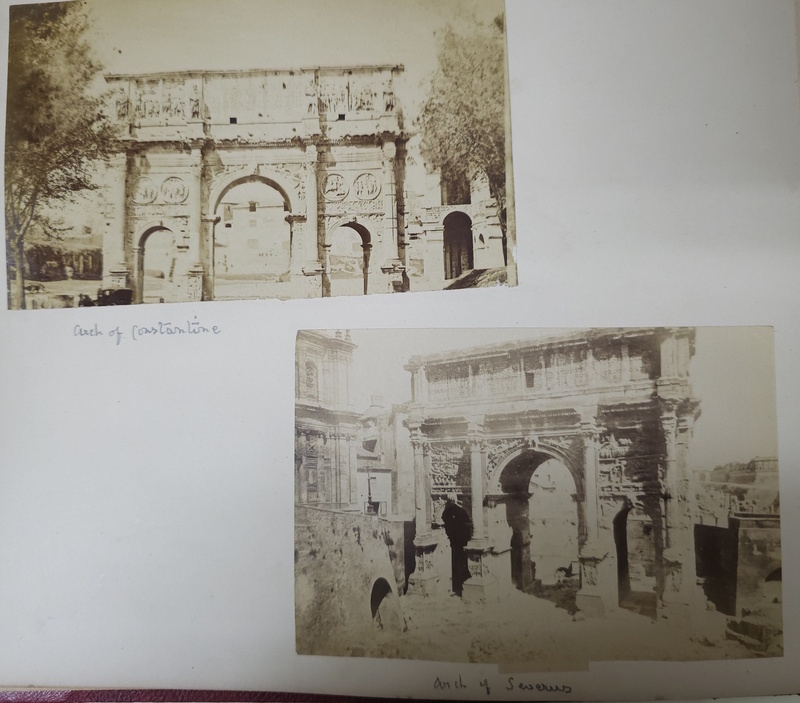 Arch of Constantine
Arch of Severus